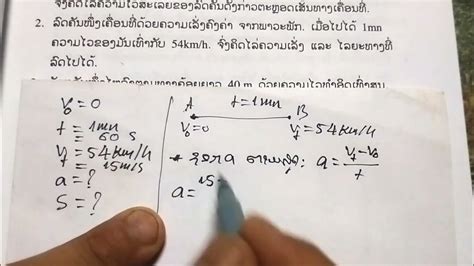 ຈົ່ງຄິດໄລ່ຄວາມໄວສະເລ່ຍຂອງລົດຄັນດັ່ງກ່າວຕະຫຼອດເສັ້ນທາງເຄື່ອນທີ່.
2. ລົດຄັນໜຶ່ງເຄື່ອນທີ່ດ້ວຍຄວາມເລັ່ງຄົງຄ່າ ຈາກພາວະພັກ. ເມື່ອໄປໄດ້ 1mn
ຄວາມໄວຂອງມັນເທົ່າກັບ 54km/h. ຈົ່ງຄິດໄລ່ຄວາມເລັ່ງ ແລະ ໄລຍະທາງທີ່
ລົດໄປໄດ້.
40 m ດ້ວຍຄວາມໄວ
V₀ = 0
t = 1mn
= 60 s
V_f = 54 km/h
= 15 m/s
a = ?
S = ?
A t = 1mn B
V₀ = 0 V_f = 54 km/h
a = (V_f - V₀)/t
a = 15 -